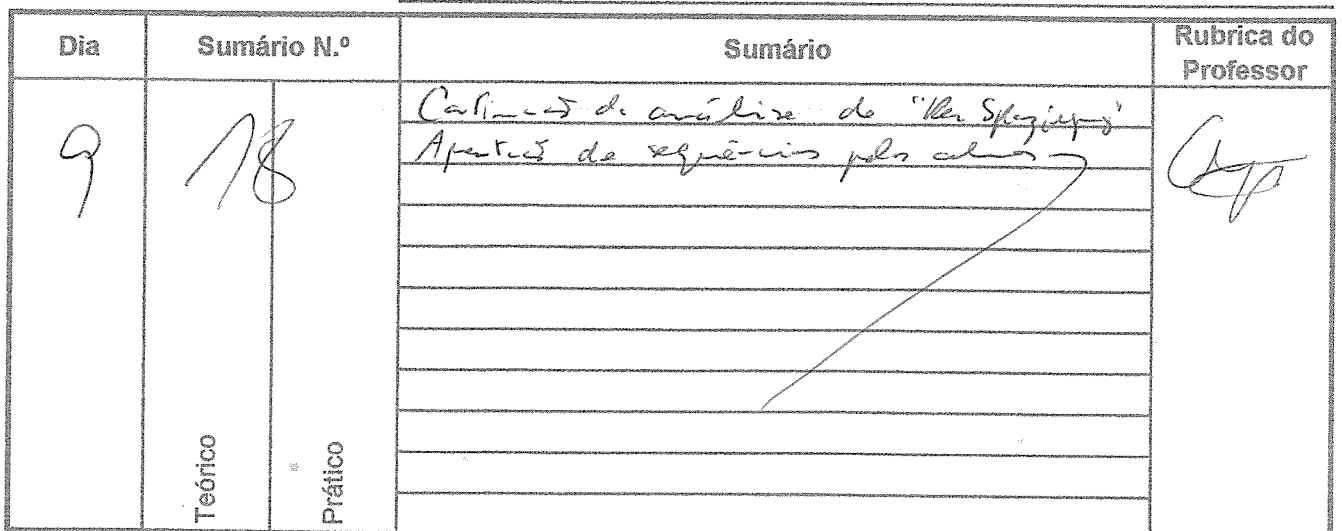 Dia Sumário N.º Sumário Rubrica do Professor
9 18
de análise de "Der Spaziergang"
de sequências pelos alunos
Teórico Prático